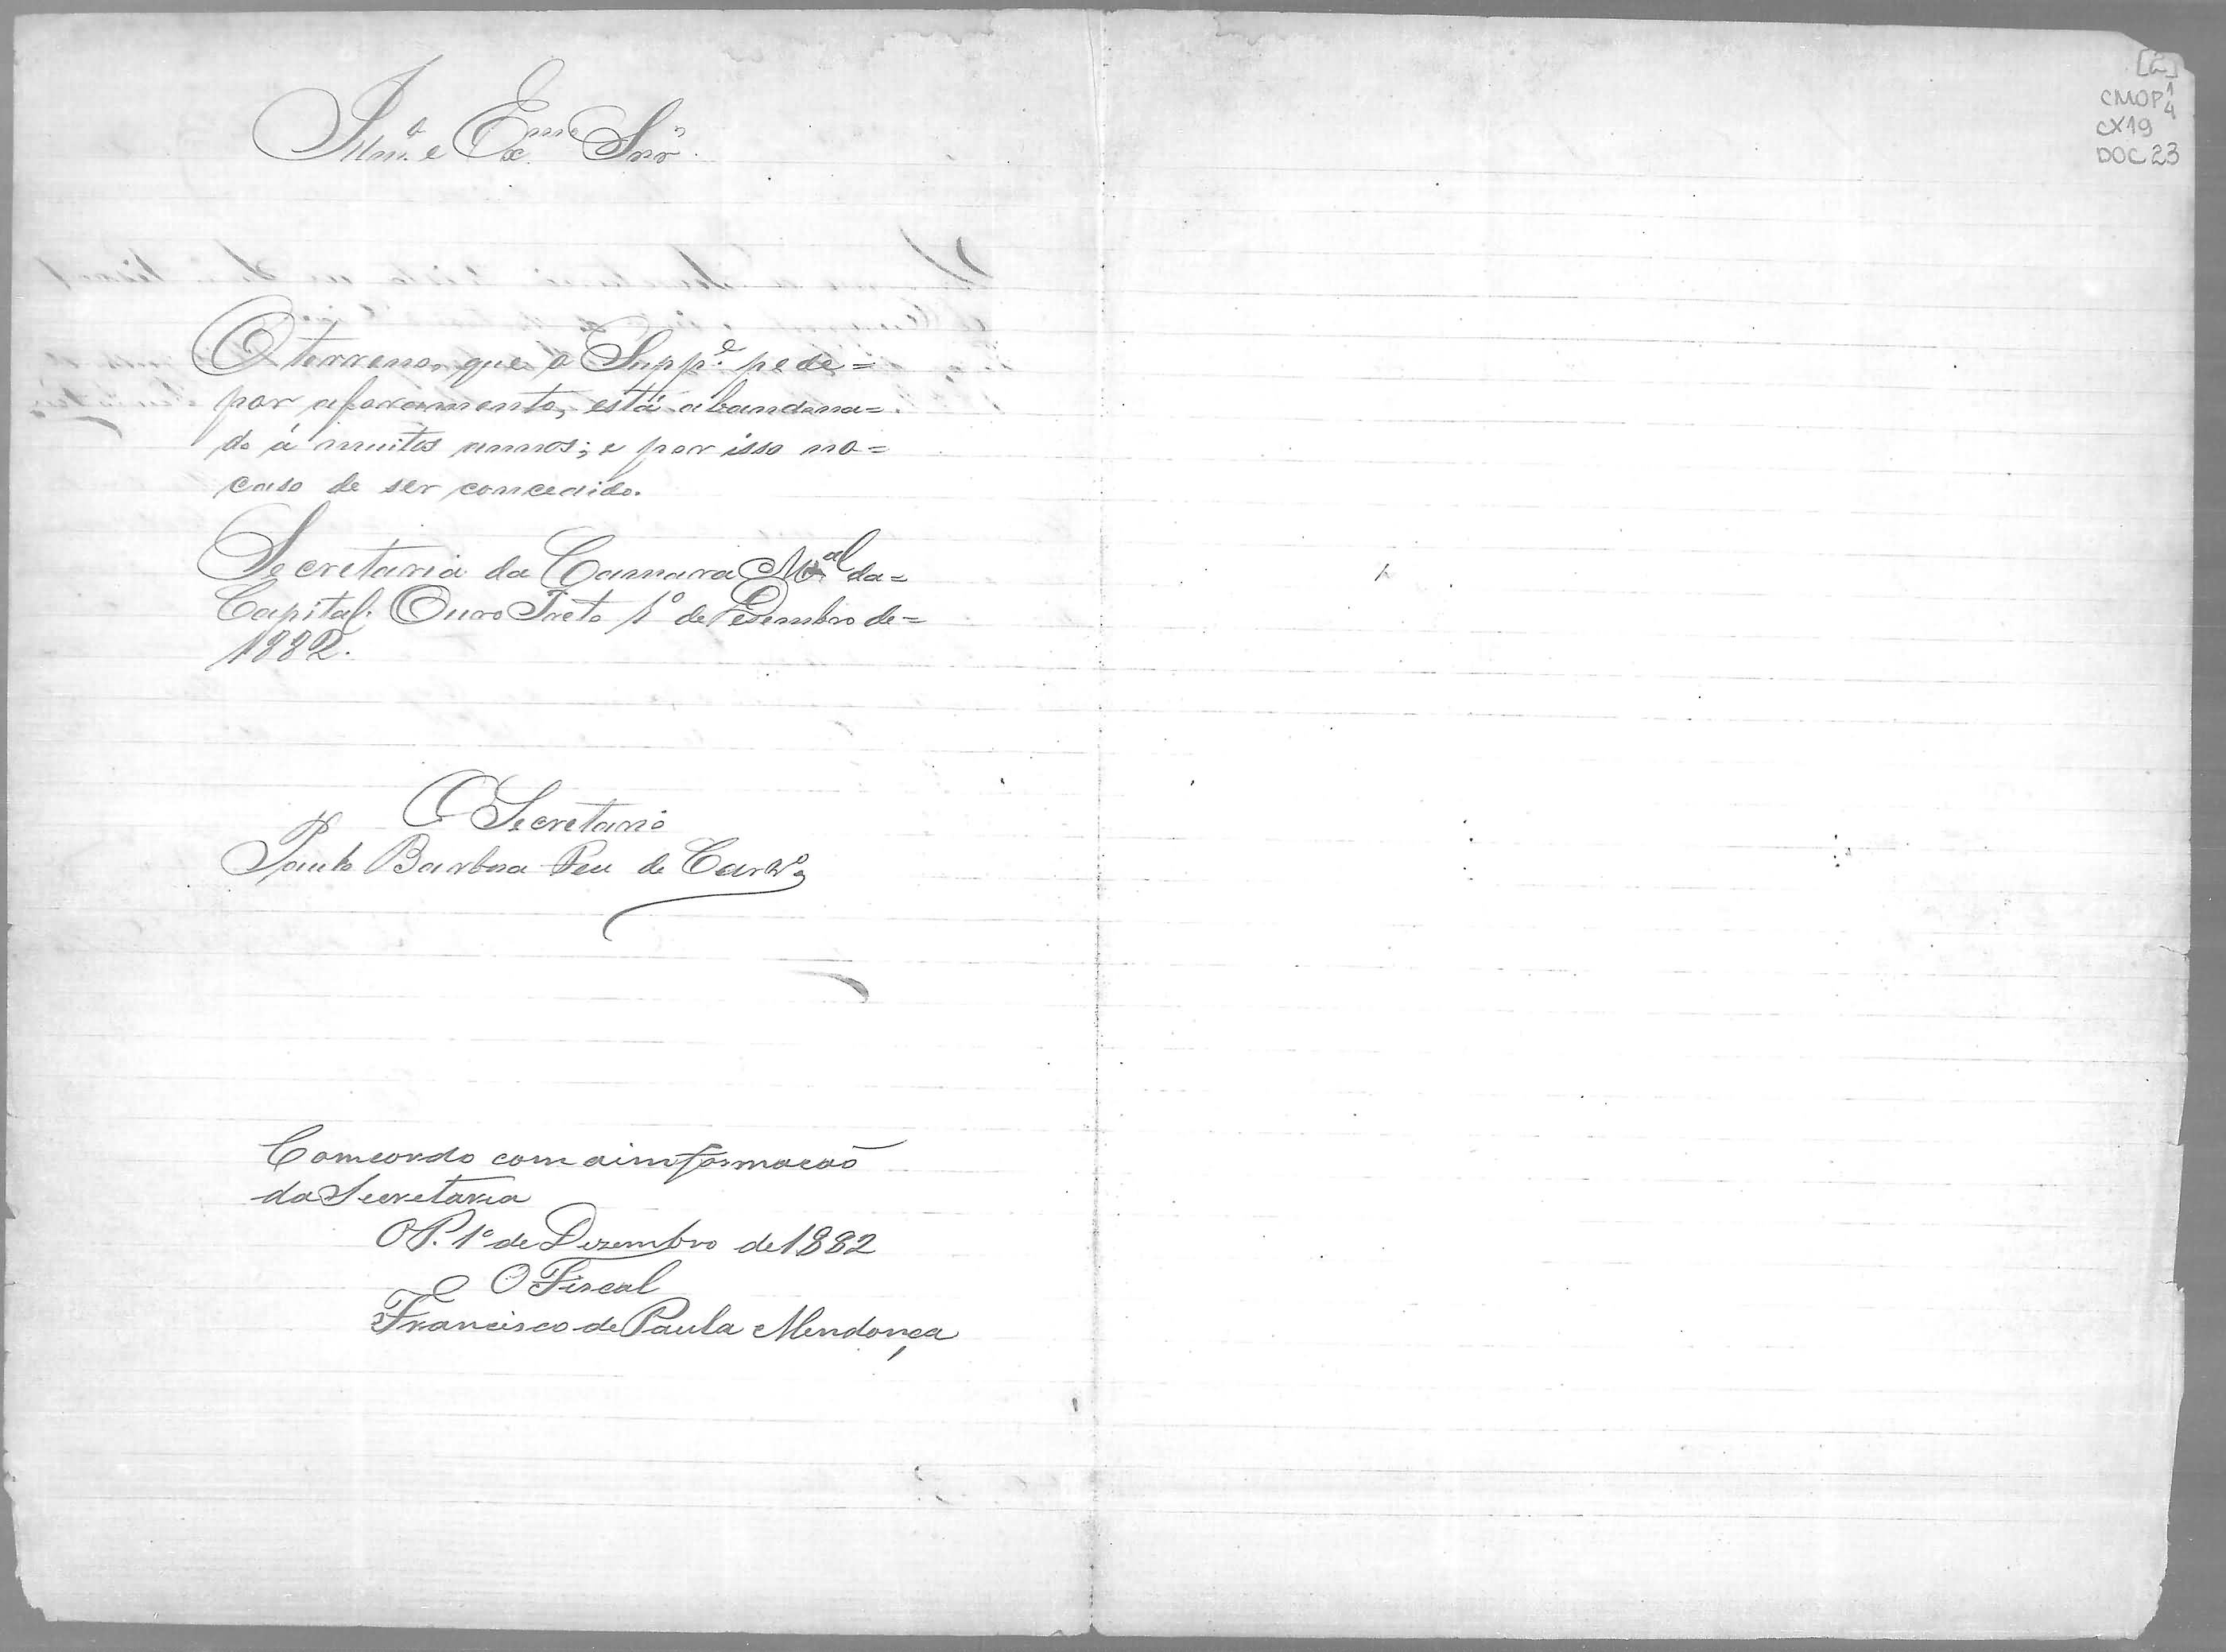 Illm.º e Ex.mo Snr.
O terreno que o Supp.e pede=
por aforamento, está abandona=
do á muitos annos; e por isso no=
caso de ser concedido.
Secretaria da Camara M.al da=
Capital. Ouro Preto 1º de Desembro de=
1882.
O Secretario
Paulo Barbosa de Carv.º
Comcordo com a imformacaõ
da Secretaria
O P. 1º de Dezembro de 1882
O Fiscal
Francisco de Paula Mendonça
CMOP
CX19
DOC 23